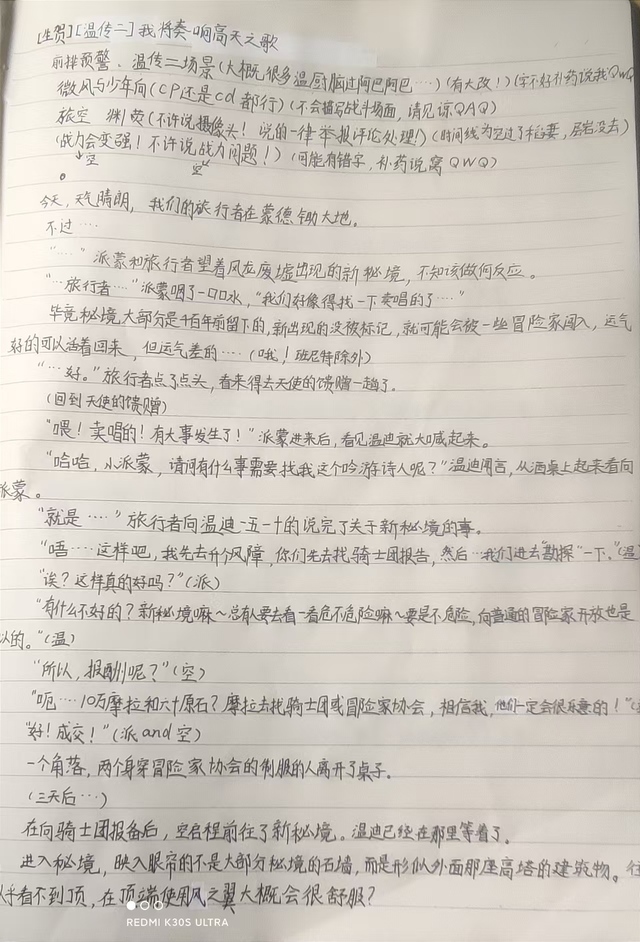 [生贺][温传二]我将奏响高天之歌
前排预警、温传二场景(大概很多温厨脑过阿巴阿巴……)(有大改!)(字不好补药说我QWQ
微风与少年向(CP还是cd都行)(不会描写战斗场面,请见谅QAQ)
旅空 渊荧(不许说摄像头!说的一律举报评论处理!)(时间线为空过了稻妻,层岩没去)
(战力会变强!不许说战力问题!)(可能有错字,补药说窝QWQ)
空 空
。
今天,天气晴朗,我们的旅行者在蒙德锄大地。
不过……
“……”派蒙和旅行者望着风龙废墟出现的新秘境,不知该做何反应。
“…旅行者……”派蒙咽了一口口水,“我们好像得找一下卖唱的了……”
毕竟秘境大部分是千百年前留下的,新出现的没被标记,就可能会被一些冒险家闯入,运气
好的可以活着回来,但运气差的……(哦!班尼特除外)
“…好。”旅行者点了点头,看来得去天使的馈赠一趟了。
(回到天使的馈赠)
“喂!卖唱的!有大事发生了!”派蒙进来后,看见温迪就大喊起来。
“哈哈,小派蒙,请问有什么事需要找我这个吟游诗人呢?”温迪闻言,从酒桌上起来看向
派蒙。
“就是……”旅行者向温迪一五一十的说完了关于新秘境的事。
“唔……这样吧,我先去开个风障,你们先去找骑士团报告,然后…我们进去“勘探”一下。”(温)
“诶?这样真的好吗?”(派)
“有什么不好的?新秘境嘛~总有人要去看一看危不危险嘛~要是不危险,向普通的冒险家开放也是
以的。”(温)
“所以,报酬呢?”(空)
“呃……10万摩拉和六十原石?摩拉去找骑士团或冒险家协会,相信我,他们一定会很乐意的!”(
“好!成交!”(派and空)
一个角落,两个身穿冒险家协会的制服的人离开了桌子。
(三天后…)
在向骑士团报备后,空启程前往了新秘境。温迪已经在那里等着了。
进入秘境,映入眼帘的不是大部分秘境的石墙,而是形似外面那座高塔的建筑物。往
乎看不到顶,在顶端使用风之翼大概会很舒服?
REDMI K30S ULTRA